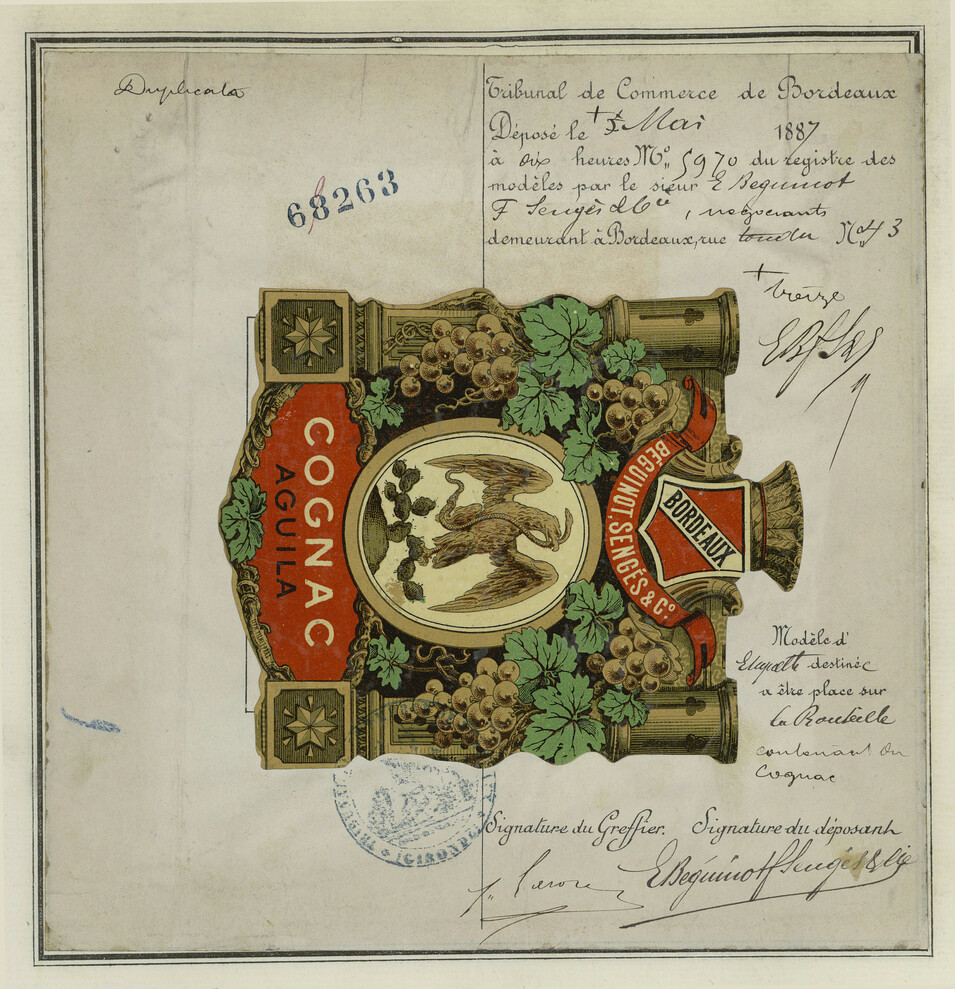 Duplicata
68263
Tribunal de Commerce de Bordeaux
Déposé le + 5 Mai 1887
à dix heures No. 5970 du registre des
modèles par le sieur E Beguinot
F Sengès & Cie, négociants
demeurant à Bordeaux, rue No. 43
+ treize
COGNAC
AGUILA
BÉGUINOT, SENGÈS & Co.
BORDEAUX
Modèle d'
Etiquette destinée
a être place sur
la Bouteille
contenant du
Cognac
Signature du Greffier. Signature du déposant
E Béguinot F Sengès & Cie
TRIBUNAL
(GIRONDE)